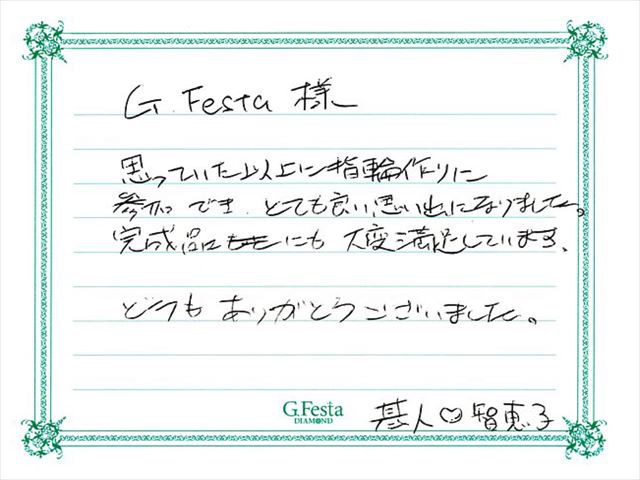 G.Festa 様
思っていた以上に指輪作りに
参加でき、とても良い思い出になりました。
完成品にもにも大変満足しています。
どうもありがとうございました。
G.Festa
DIAMOND
基人♡智恵子